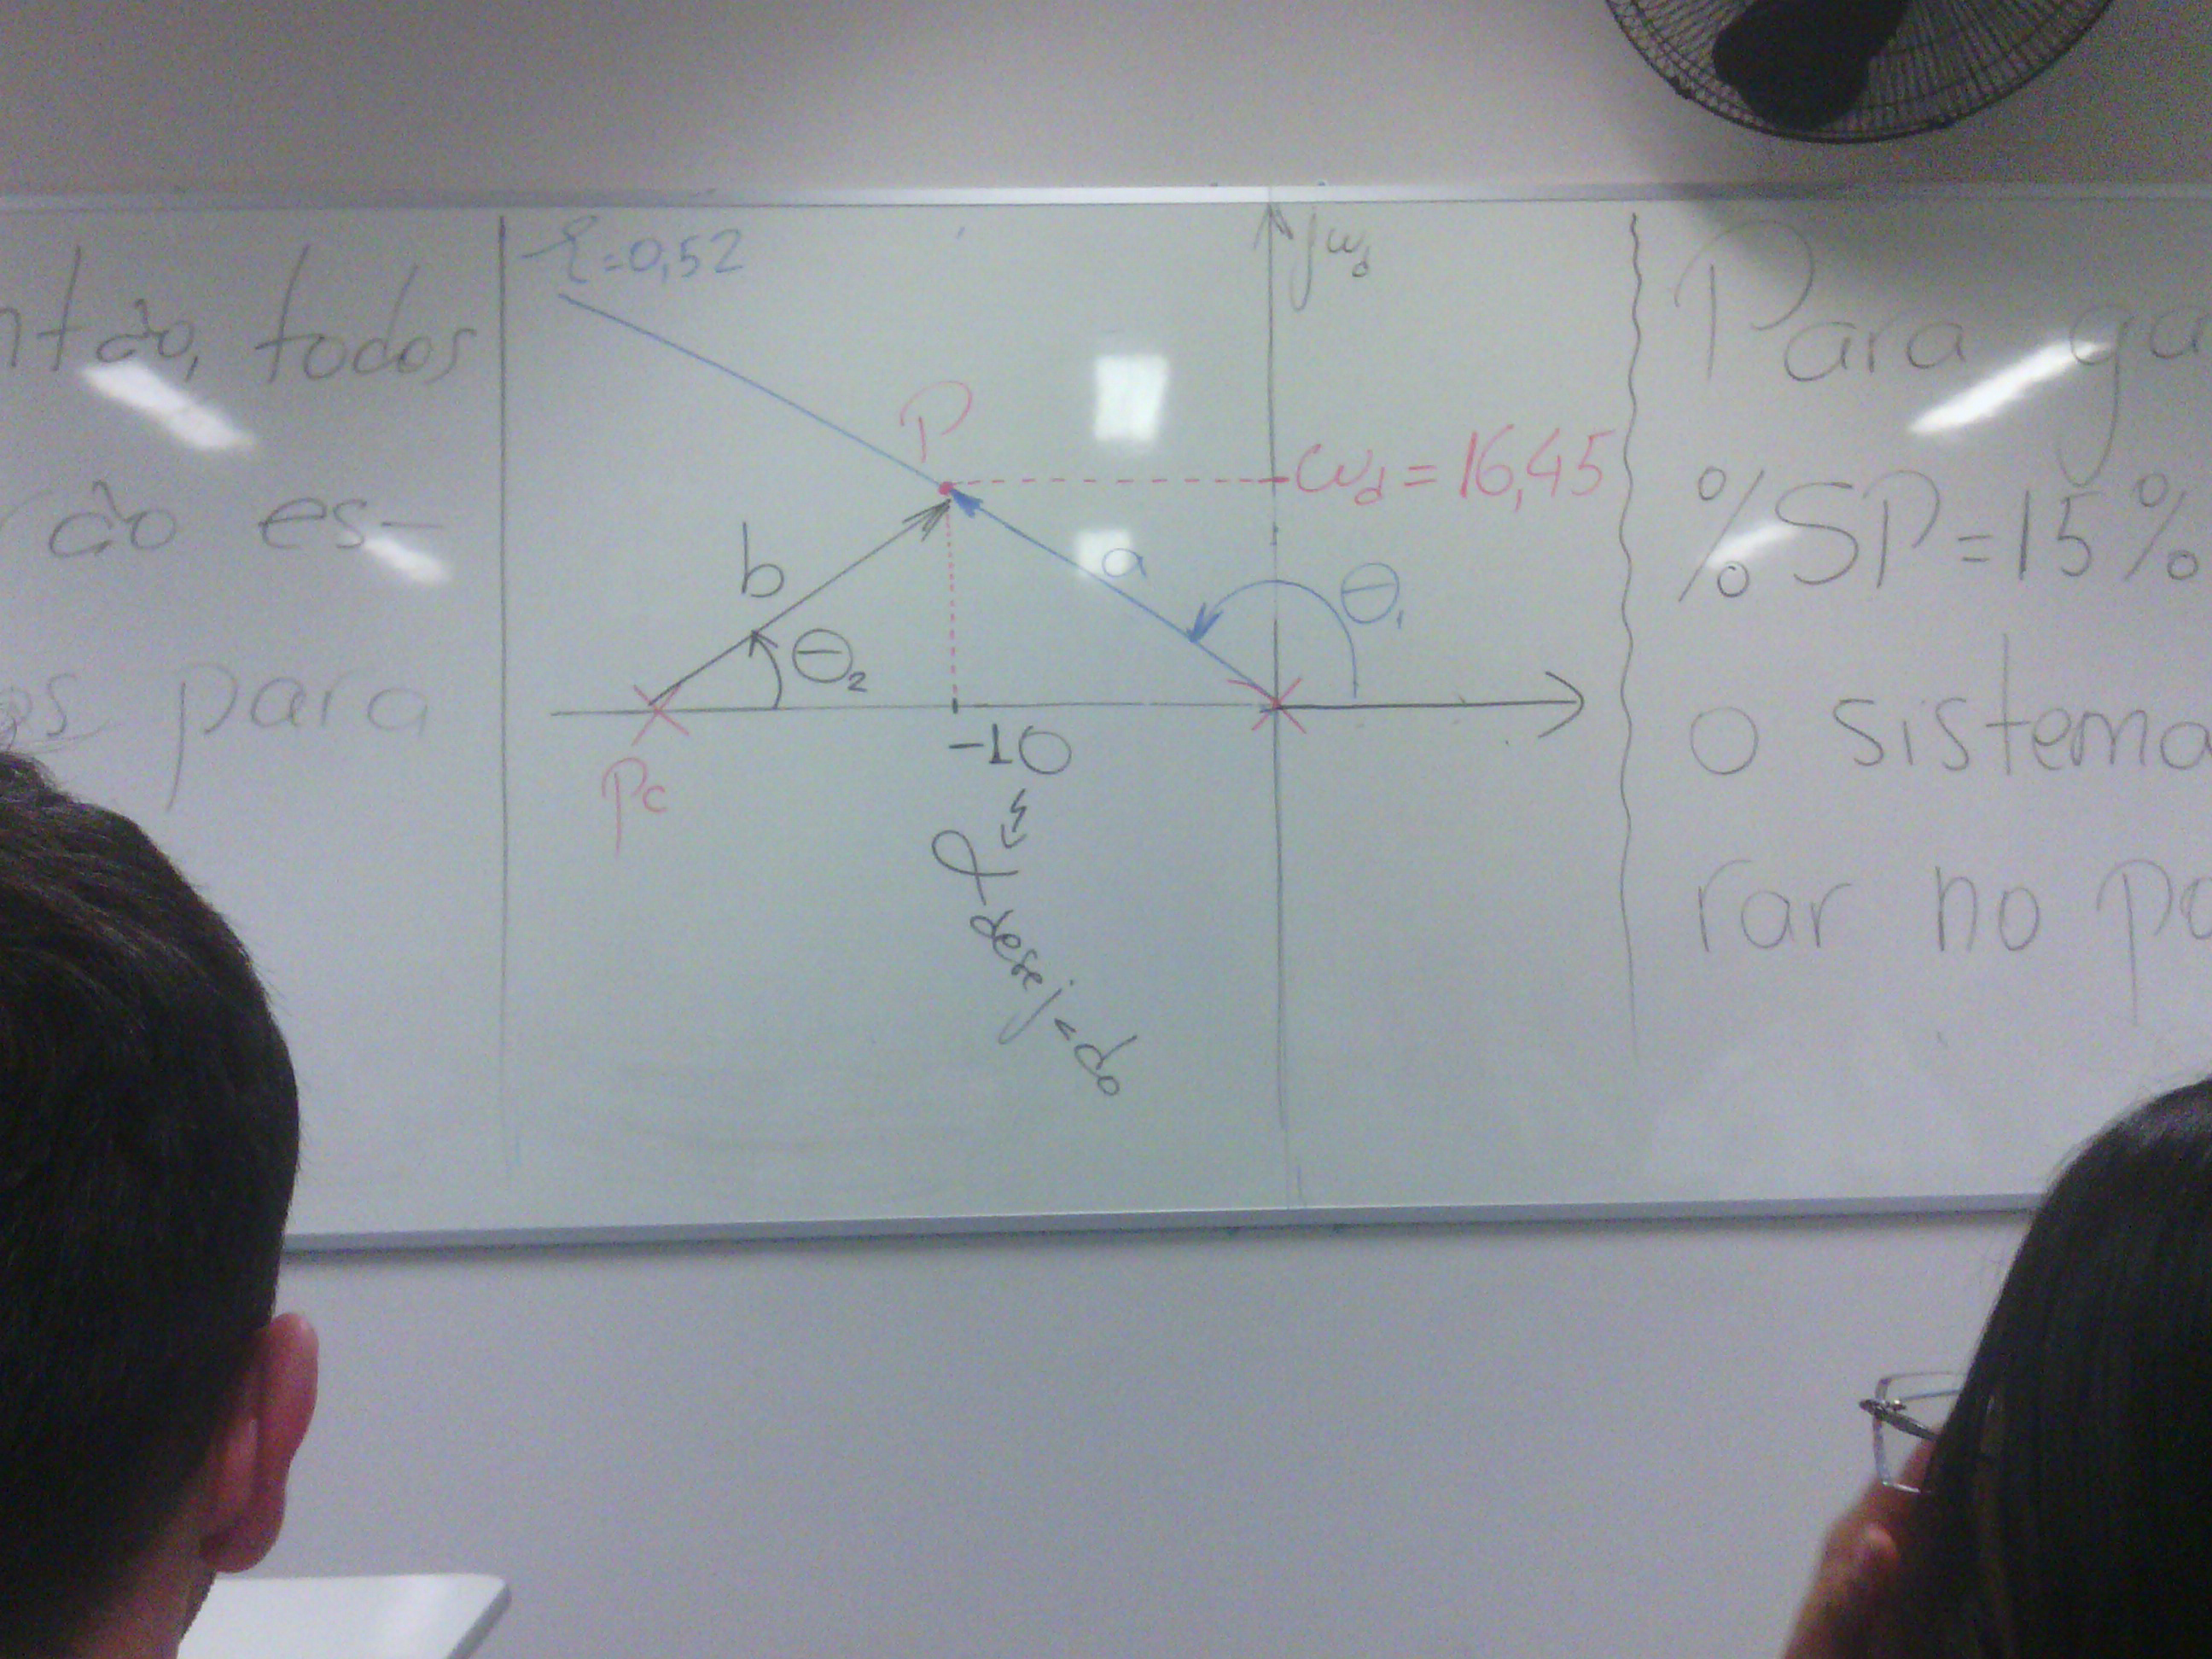 ntão, todos
rão es-
os para
ξ=0,52
jω_d
P
ω_d = 16,45
b
a
θ₁
θ₂
-10
Pc
α desejado
Para ga
%SP=15%
o sistema
rar no po